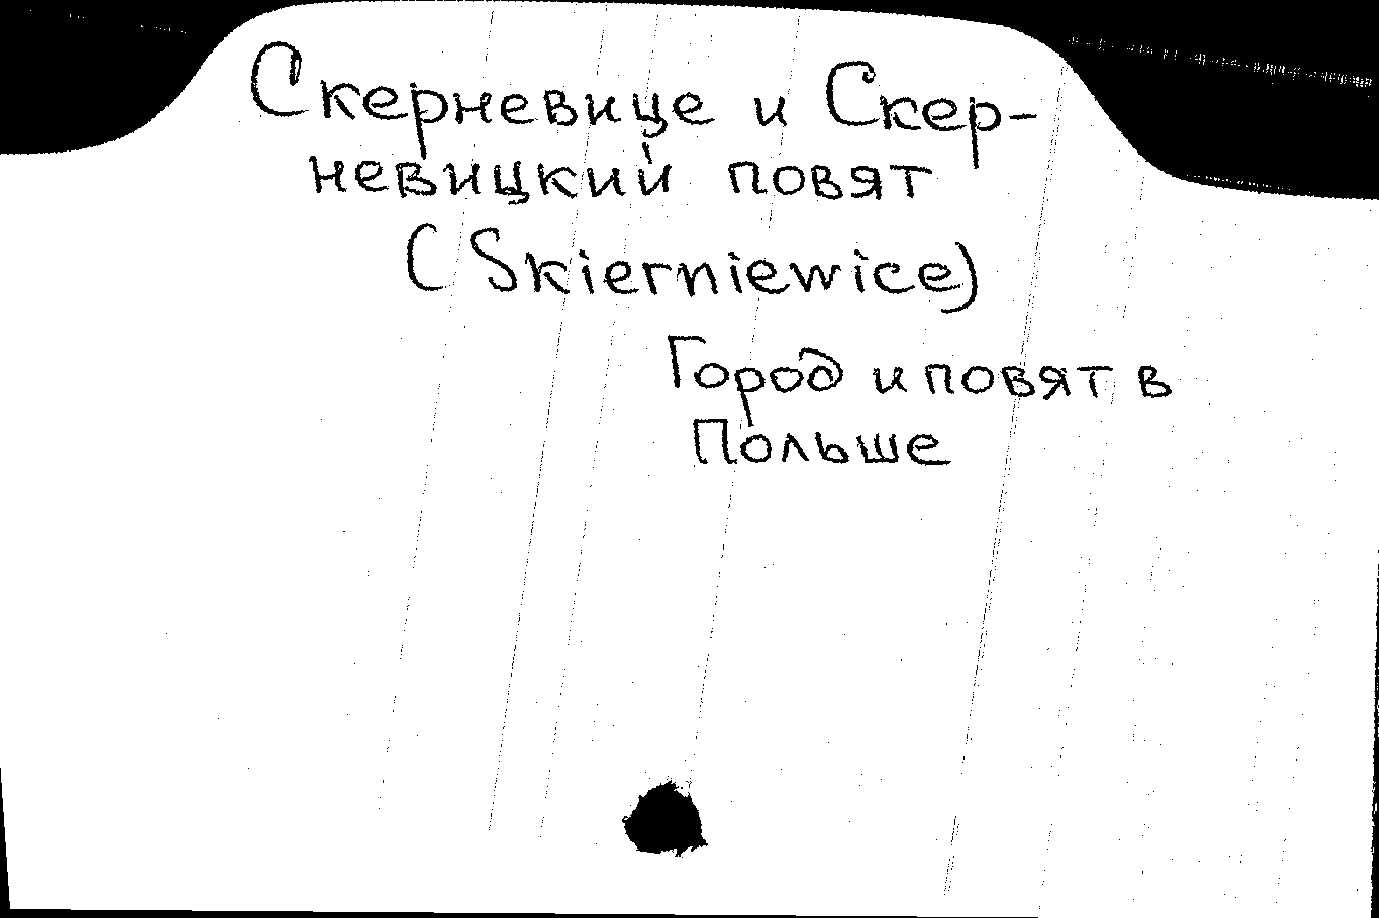 Скерневице и Скер-
невицкий повят
(Skierniewice)
Город и повят в
Польше